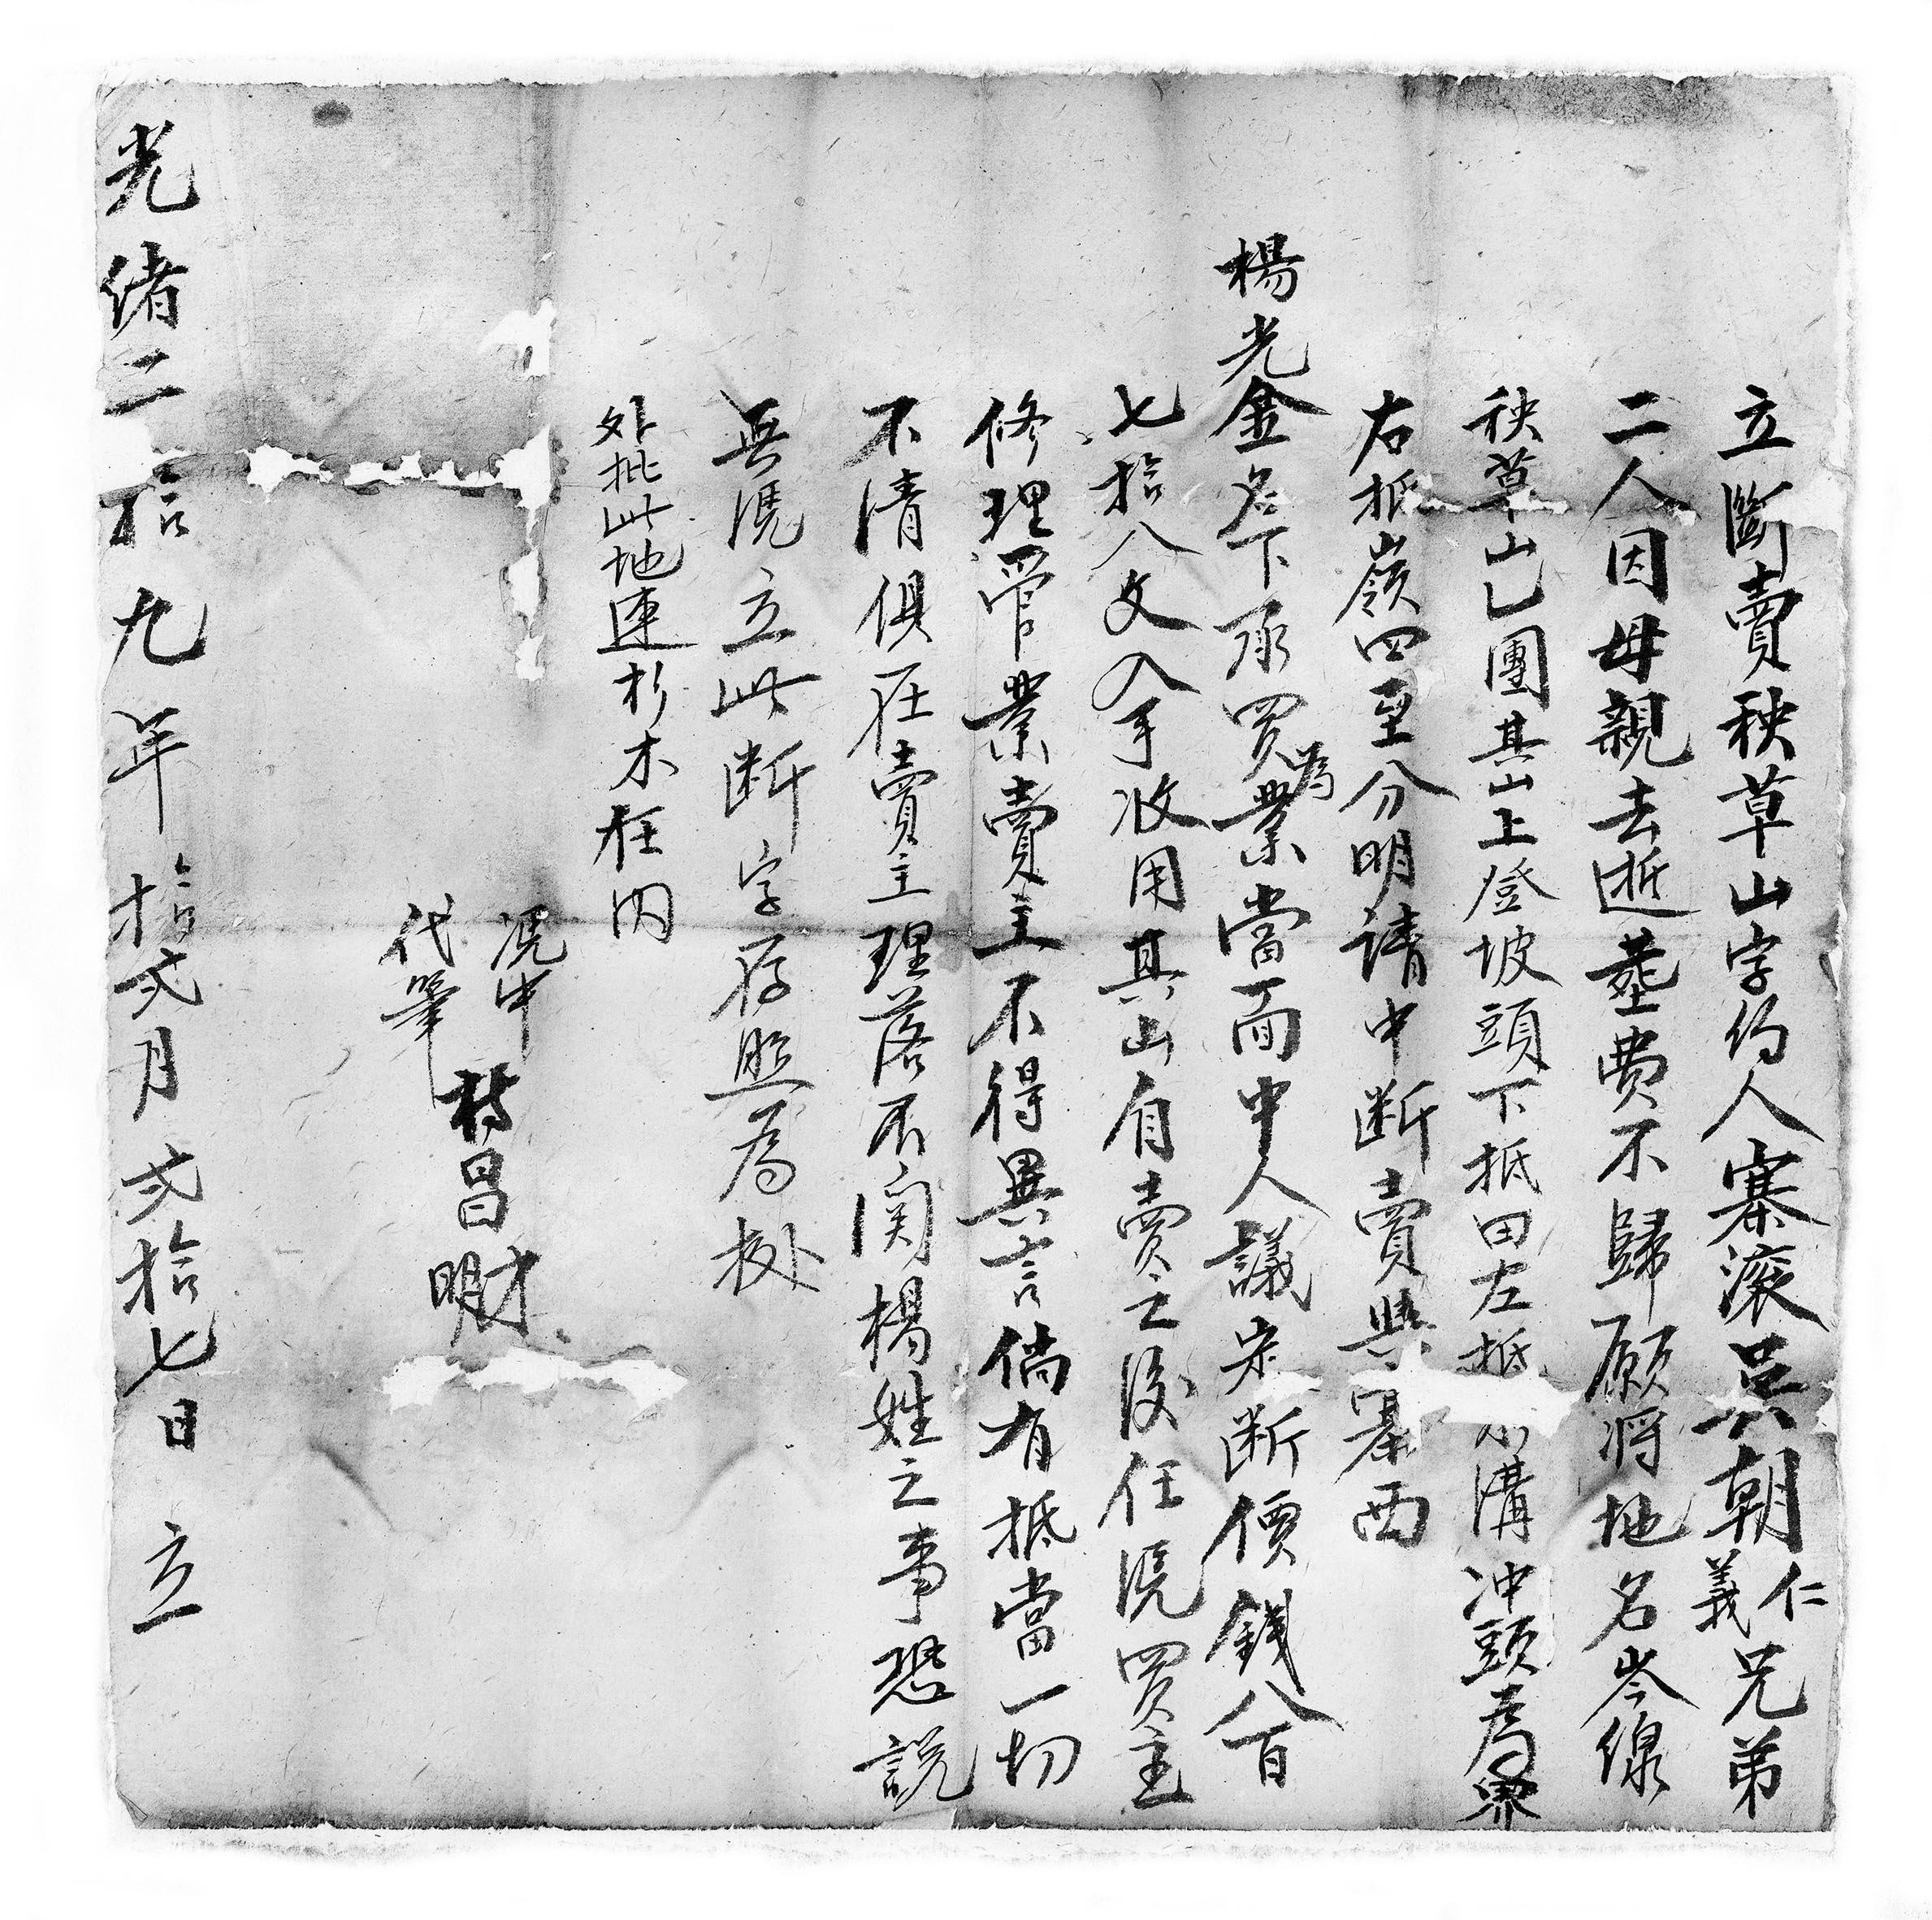 立斷賣秧草山字約人寨滾吳朝仁義兄弟
二人因母親去逝塟费不歸愿将地名岑線
秧草山乙團其山上登坡頭下抵田左抵水溝冲頭為界
右抵嶺四至分明請中断賣與寨西
楊光金名下承買為業當面中人議定断價錢八百
七拾八文入手收用其山自賣之後任凴買主
修理管業賣主不得異言倘有抵當一切
不清俱在賣主理落不関楊姓之事恐説
無凴立此断字存照為㯲
外批此地連杉木在内
凴中
代筆
昌
財
明
光緒二拾九年拾弍月弍拾七日立